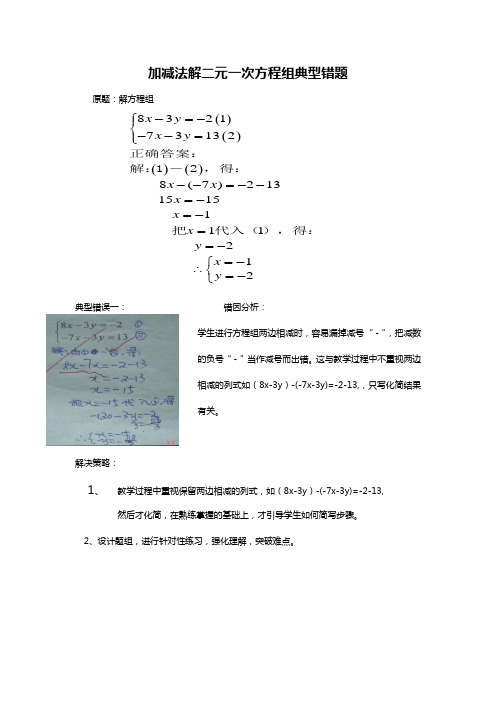 加减法解二元一次方程组典型错题
原题：解方程组
8x－3y＝－2 (1)
－7x－3y＝13 (2)
正确答案：
解：(1)－(2)，得：
8x－(－7x)＝－2－13
15x＝－15
x＝－1
把x＝1代入（1），得：
y＝－2
∴ x＝－1
y＝－2
典型错误一： 错因分析：
8x－3y＝－2 ①
－7x－3y＝13 ②
8x-7x=-2-13
x=-2-13
x=-15
把x=-15代入①,得
学生进行方程组两边相减时，容易漏掉减号“-”，把减数
的负号“-”当作减号而出错。这与教学过程中不重视两边
相减的列式如（8x-3y）-(-7x-3y)=-2-13,，只写化简结果
有关。
解决策略：
1、 教学过程中重视保留两边相减的列式，如（8x-3y）-(-7x-3y)=-2-13,
然后才化简，在熟练掌握的基础上，才引导学生如何简写步骤。
2、设计题组，进行针对性练习，强化理解，突破难点。